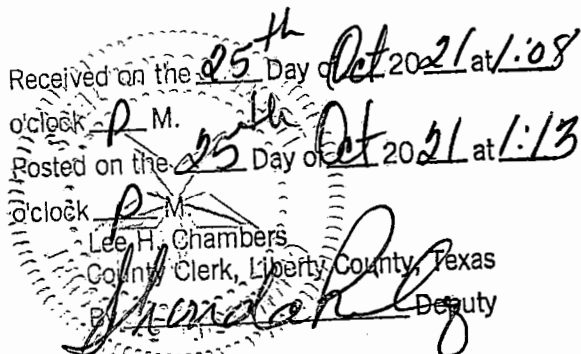 Received on the 25th Day of Oct 2021 at 1:08
o'clock P M.
Posted on the 25th Day of Oct 2021 at 1:13
o'clock P M.
Lee H. Chambers
County Clerk, Liberty County, Texas
By Deputy